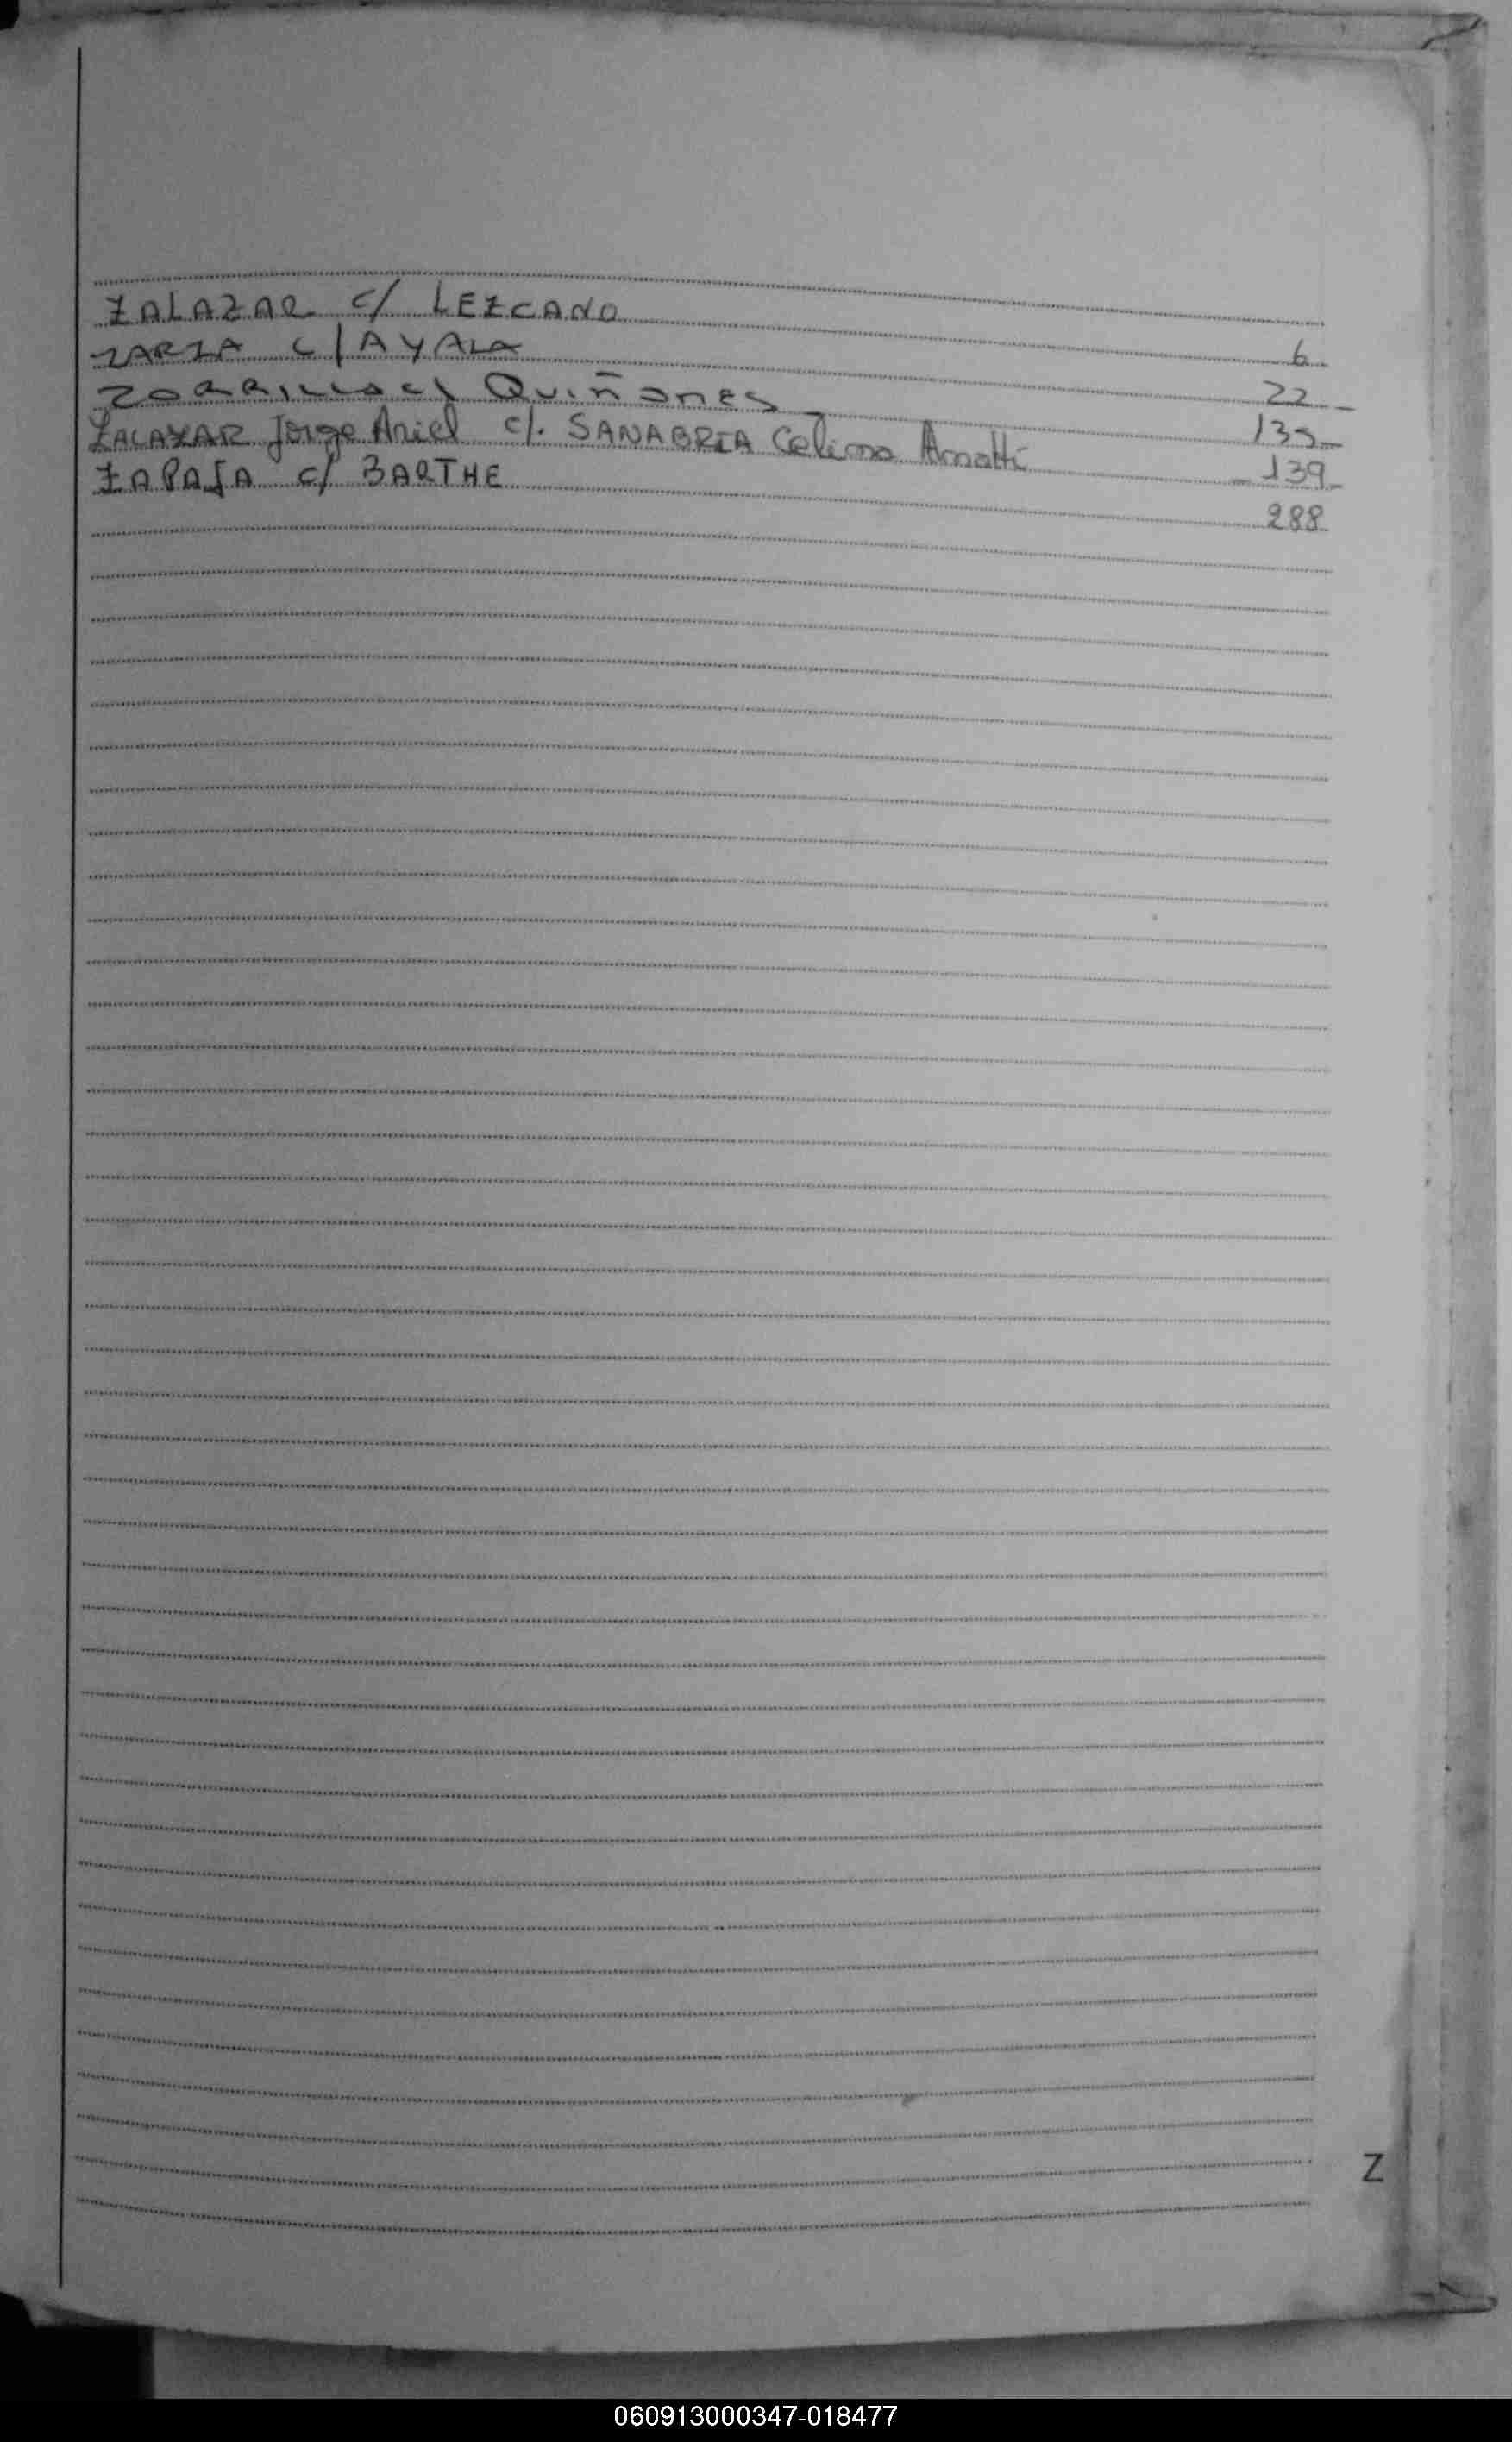 ZALAZAR c/ LEZCANO 6
ZARZA c/ AYALA 22
ZORRILLA c/ QUIÑONES 135
ZALAZAR Jorge Ariel c/. SANABRIA Celima 139
ZAPAJA c/ BARTHE 288
Z
060913000347-018477